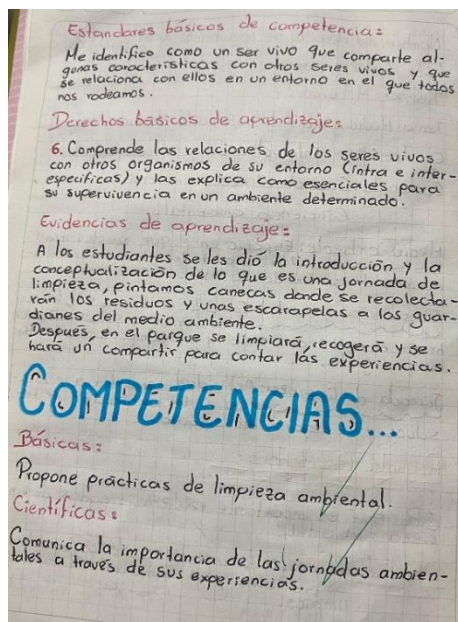 Estandares básicos de competencia:
Me identifico como un ser vivo que comparte al-
gunas caracteristicas con otros seres vivos y que
se relaciona con ellos en un entorno en el que todos
nos rodeamos.
Derechos básicos de aprendizaje:
6. Comprende las relaciones de los seres vivos
con otros organismos de su entorno (intra e inter-
especificas) y las explica como esenciales para
su supervivencia en un ambiente determinado.
Evidencias de aprendizaje:
A los estudiantes se les dió la introducción y la
conceptualización de lo que es una jornada de
limpieza, pintamos canecas donde se recolecta-
rán los residuos y unas escarapelas a los guar-
dianes del medio ambiente.
Después, en el parque se limpiará, recogerá y se
hará un compartir para contar las experiencias.
COMPETENCIAS...
Básicas:
Propone prácticas de limpieza ambiental.
Científicas:
Comunica la importancia de las jornadas ambien-
tales a través de sus experiencias.